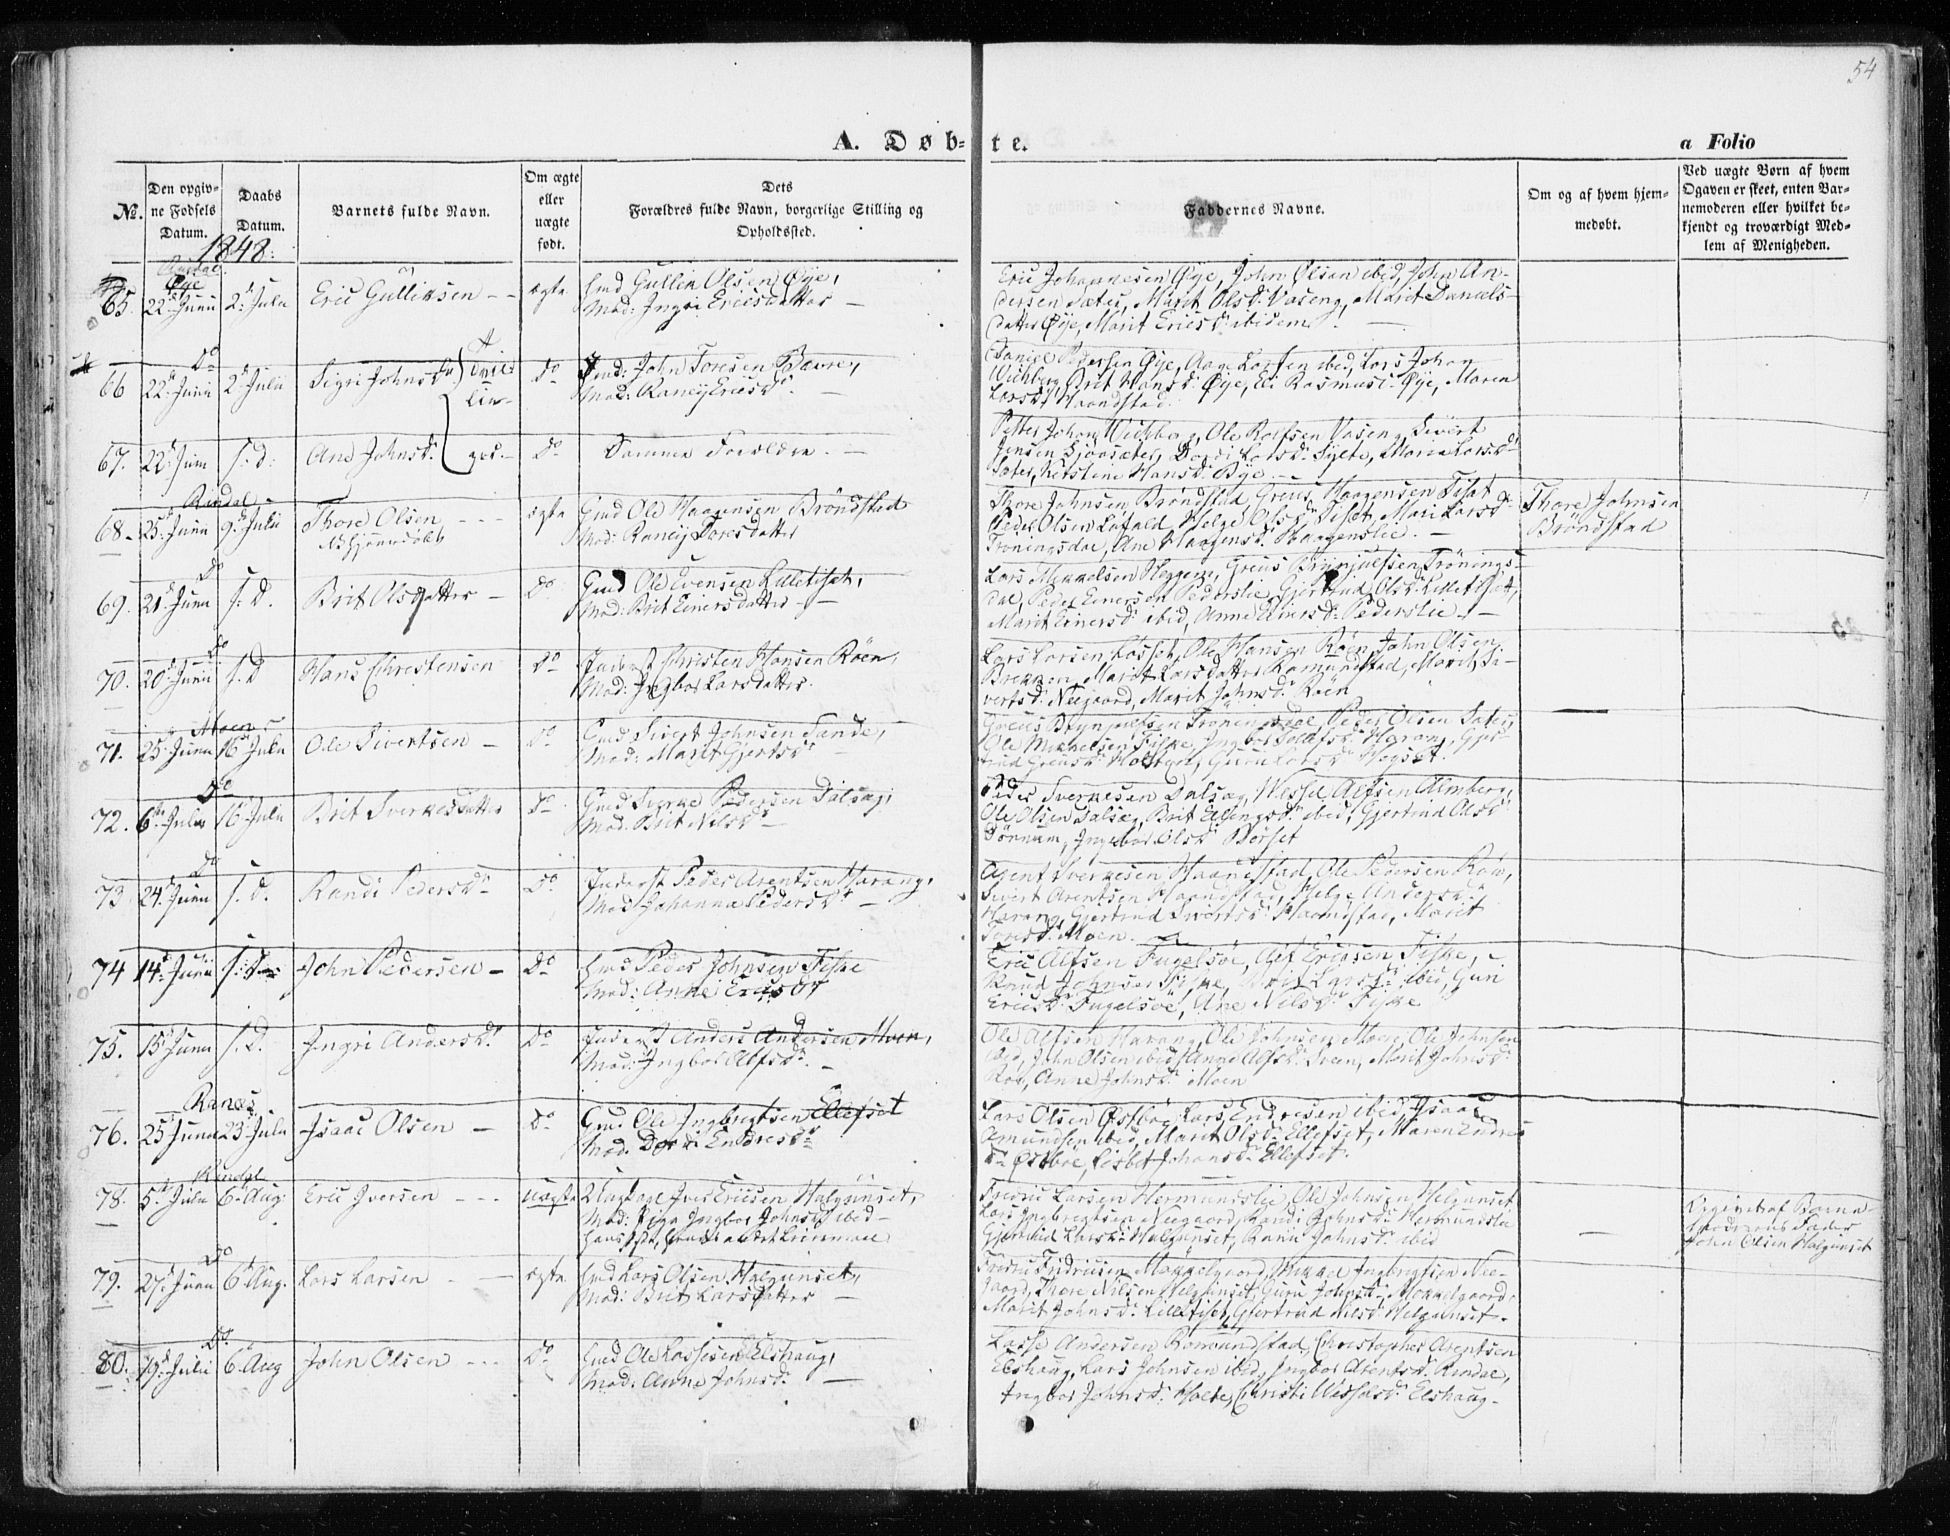 54
A. Døb-te.
a Folio
No.
Den opgiv-
ne Fødsels
Datum.
Daabs
Datum.
Barnets fulde Navn.
Om ægte
eller
uægte
født.
Dets
Forældres fulde Navn, borgerlige Stilling og
Opholdssted.
Faddernes Navne.
Om og af hvem hjem-
medøbt.
Ved uægte Børn af hvem
Opgaven er skeet, enten Bar-
nemoderen eller hvilket be-
kjendt og troværdigt Med-
lem af Menigheden.
1848:
Øye
65. 22. Junii 2. Julii Eric Gulliksen -- ægte Gmd Gullik Olsen Øye,
Mod: Ingri Ericsdatter -
Eric Johannesen Øye, John Olsen ibid, John An-
dersen Sæter, Marit Olsd. Vaseng, Marit Daniels-
datter Øye, Marit Ericsd. ibidem. -
Do
66 22. Junii 2. Julii Sigri Johnsdr. Tvil- Do Ind: John Toresen Bævre,
lin-
Mod: Ranei Ericsd. -
Daniel Pedersen Øye, Aage Larsen ibid, Lars Johan
Wichberg, Brit Hansd. Øye, Rasmusd. Øye, Maren
Larsd. Haandstad.
67. 22. Junii s. d: Ane Johnsd. ger. - Do. Samme Forældre. -
Petter Johan Wichberg, Ole Rolfsen Vaseng, Sivert
Jensen Sjøasæter, Dordi Larsd. Sylte, Maria Larsd.
Sæter, Kirstine Hansd. Øye. -
Rindal
68- 25. Junii 9. Julii Thore Olsen --- ægte Gmd Ole Haagensen Brøndstad
hjemmedøbt
Mod: Raneij Toresdatter
Thore Johnsen Brøndstad, Greus Haagensen Tiset
Peder Olsen Løfald, Helge Olsd. Tiset, Mari Larsd.
Trøningsdal, Ane Haagensd. Haagenslie. -
Thore Johnsen
Brøndstad
Do
69. 21. Junii s. D. Brit Olsdatter - Do Gmd Ole Evensen Lilletiset,
Mod: Brit Einersdatter -
Lars Mikkelsen Heggem, Greus Brynjulfsen Trønings-
dal, Peder Einersen Pederslie, Gjertrud Olsd. Lilletiset,
Marit Einersd. ibid, Anne Einersd. Pederslie. -
Do
70. 20. Junii s. D Hans Christensen Do Inderst Christen Hansen Røen,
Mod: Ingbor Larsdatter.
Lars Larsen Løsset, Ole Hansen Røen, John Olsen
Brekken, Marit Larsdatter Romundstad, Marit Si-
vertsd. Neegaard, Marit Johnsd. Røen
Moen
71. 25. Junii 16. Julii Ole Sivertsen - Do Gmd Sivert Johnsen Sande,
Mod: Marit Gjertsd. -
Greus Brynjulfsen Trøningsdal, Peder Olsen Sæter,
Ole Mikkelsen Fiske, Ingbor Harang, Gjer-
trud Greusd. Holten, Guru Høyset.
Do
72. 6. Julii 16. Julii Brit Sverkesdatter Do Gmd Sverke Pedersen Dalsæg,
Mod. Brit Nilsd. -
Peder Sverkesen Dalsæg, Wessel Alfsen Almberg,
Ole Olsen Dalsæg, Brit Ellingsd. ibid, Gjertrud Olsd.
Tørnum, Ingebor Olsd. Børset
Do
73 24. Junii s. D. Randi Pedersdr. Do. Inderst Peder Arentsen Harang,
Mod. Johanna Pedersdr. -
Agent Sverkesen Haandstad, Ole Pedersen Røv,
Sivert Arentsen Haandstad, Helge Andersd.
Harang, Gjertrud Sivertsd. Haandstad, Marit
Toresd. Moen.
74 14. Junii s. D. John Pedersen - Do Gmd Peder Johnsen Fiske
Mod: Anne Ericsdt
Eric Alfsen Fugelsøe, Alf Ericsen Fiske, -
Knud Johnsen Fiske, Brit Larsd. ibid, Guri
Ericsd. Fugelsøe, Ane Nilsd. Fiske
75. 15. Junii s. D. Ingri Andersdr. Do Inderst Anders Andersen Moen,
Mod: Ingbor Alfsd. -
Ole Alfsen Harang, Ole Johnsen Moen, Ole Johnsen
ibid, John Olsen ibid, Ane Alfsd. Sveen, Marit Johnsd.
Røv, Anne Johnsd. Moen
Ranæs
76. 25. Junii 23. Julii Isaac Olsen - Do Gmd Ole Ingbregtsen Ellefset
Mod: Dordi Endresdr.
Lars Olsen Østbøe, Lars Endresen ibid, Isaac
Amundsen ibid, Marit Olsd. Ellefset, Maren Endres
dr. Østbøe, Lisbet Johansd. Ellefset.
Rindal
78. 5. Julii 6. Aug. Eric Iversen --- uægte Ungkarl Iver Ericsen Halgunset,
Mod: Pige Ingbor Johnsd. ibid -
Fredric Larsen Hermundslie, Ole Johnsen Helgunset
Lars Ingbregtsen Neegaard, Randi Johnsd. Hermundslie
Gjertrud Larsd. Halgunset, Randi Johnsd. ibid
-
Opgivet af Barne-
moderens Fader
John Olsen Halgunset
Do
79. 27. Junii 6. Aug. Lars Larsen - - ægte Gmd Lars Olsen Halgunset,
Mod: Brit Larsdatter -
Fredric Fredricsen Møkkelgaard, Mikkel Ingbregtsen Nee-
gaard, Thore Nilsen Helgunset, Guru Johnsd. Møkkelgaard,
Marit Johnsd. Lilletiset, Gjertrud Nilsd. Helgunset.
Do.
80. 19. Julii 6. Aug John Olsen --- Do Gmd Ole Lassesen Elshaug,
Mod: Anne Johnsd. -
Lasse Andersen Romundstad, Christopher Arentsen
Elshaug, Lars Johnsen ibid, Ingbor Arentsd. Rindal,
Ingbor Johnsd. Holte, Christi Elshaug-